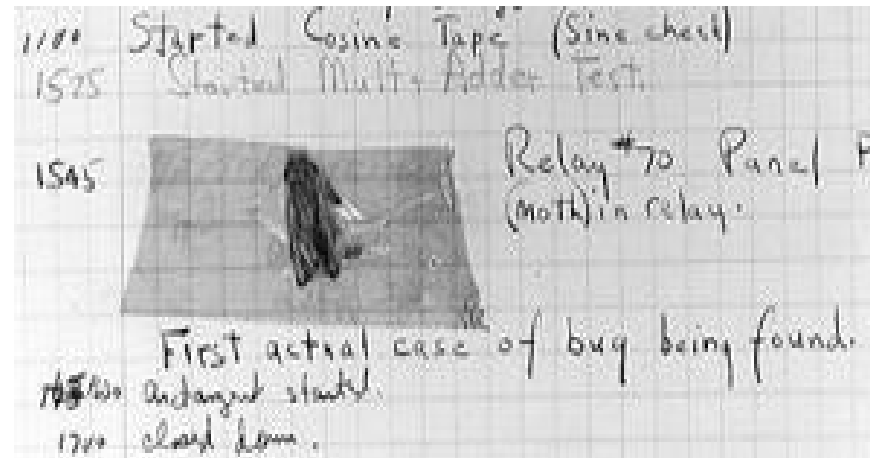 1100 Started Cosine Tape (Sine check)
1525 Started Multi Adder Test.
1545 Relay #70 Panel F
(moth) in relay.
First actual case of bug being found.
started.
1700 closed down.